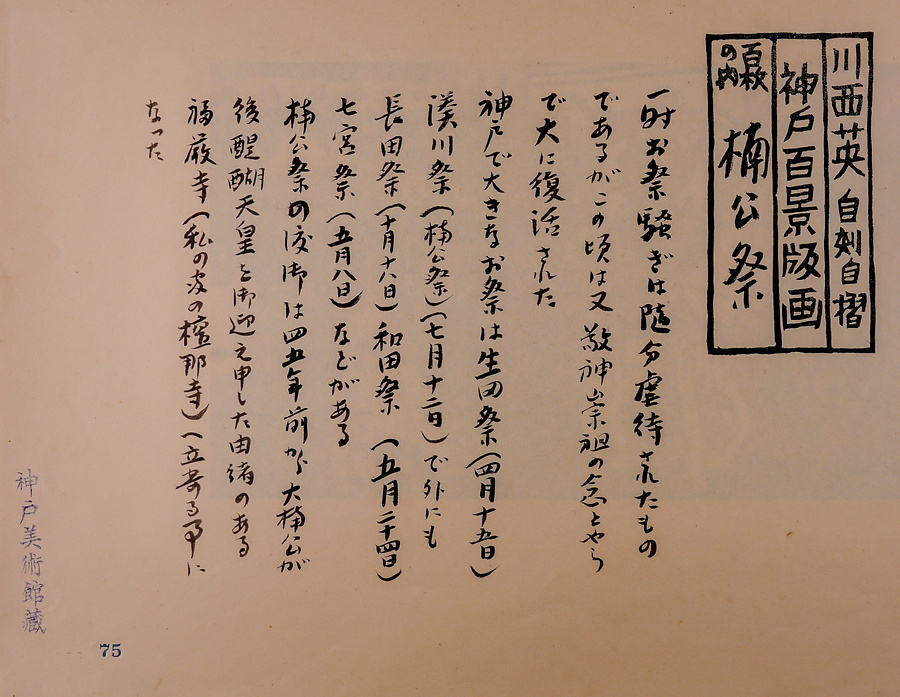 川西英 自刻自摺
神戸百景版画
百景の内 楠公祭
一時お祭騒ぎは随分虐待されたもの
であるがこの頃は又敬神崇祖の念とやら
で大に復活された
神戸で大きなお祭は生田祭(四月十五日)
湊川祭(楠公祭)(七月十二日)で外にも
長田祭(十月十八日)和田祭(五月二十四日)
七宮祭(五月八日)などがある
楠公祭の渡御は四五年前から大楠公が
後醍醐天皇を御迎え申した由緒のある
福厳寺(私の家の檀那寺)へ立寄る事に
なった
神戸美術館蔵
75